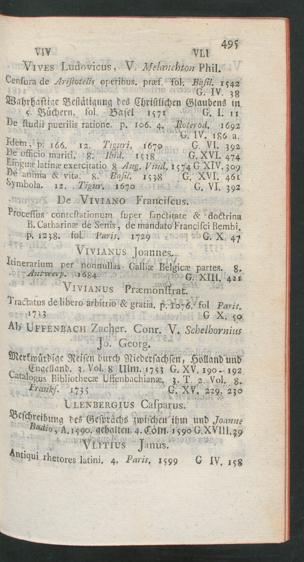 495
VIV VLI
VIVES Ludovicus, V. Melanchton Phil.
Censura de Aristotelis operibus. præf. fol. Basil. 1542
G. IV. 38
Wahrhaftige Bestätigung des Christlichen Glaubens in
5. Büchern. fol. Basel 1571 G. I. 11
De studii puerilis ratione. p. 106. 4. Roterod. 1692
G. IV. 186 a.
Idem, pi 166. 12. Tiguri, 1670 G. VI. 392
De officio mariti. 8. Ibid. 1518 G. XVI. 474
Linguæ latinæ exercitatio 8 Aug. Vind. 1574 G XIV. 309
De anima & vita. 8. Basil. 1538 G. XVI. 461
Symbola. 12. Tigur. 1670 G. VI. 392
De VIVIANO Franciscus.
Processus contestationum super sanctitate & doctrina
B. Catharinæ de Senis, de mandato Francisci Bembi,
p. 1238. fol. Paris. 1729 G. X. 47
VIVIANUS Joannes.
Itinerarium per nonnullas Galliæ Belgicæ partes. 8.
Antwerp. 1684 G. XIII. 421
VIVIANUS Præmonstrat.
Tractatus de libero arbitrio & gratia. p. 1076. fol Paris.
1733 G X. 50
Ab UFFENBACH Zachar. Conr. V. Schelhornius
Jo. Georg.
Merkwürdige Reisen durch Niedersachsen, Holland und
Engelland. 3. Vol. 8 Ulm. 1753 G. XV. 190-192
Catalogus Bibliothecæ Uffenbachianæ, 3. T. 2. Vol. 8.
Frankf. 1735 G XV. 229. 230
ULENBERGIUS Casparus.
Beschreibung des Gesprächs zwischen ihm und Joanne
Badio, A. 1590. gehalten. 4. Cöln. 1590 G.XVIII.39
VLITIUS Janus.
Antiqui rhetores latini. 4. Paris, 1599 G IV. 158